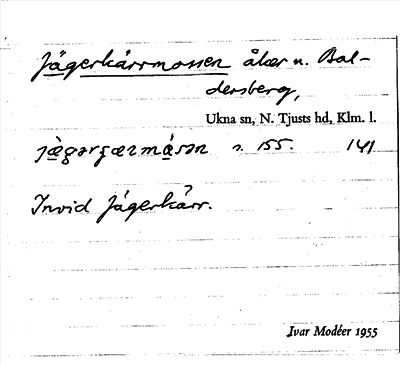 Jägerkärrmossen åker u. Bal-
dersberg,
Ukna sn, N. Tjusts hd, Klm. l.
s. 155. 141
Invid Jägerkärr.
Ivar Modéer 1955